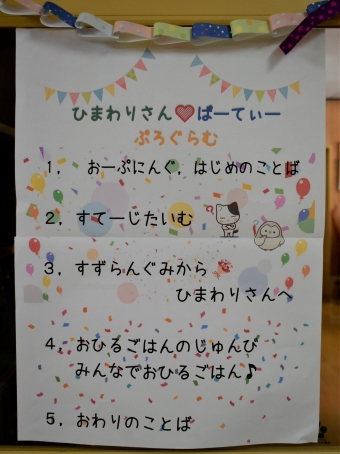 ひまわりさん♥ぱーてぃー
ぷろぐらむ
1．おーぷにんぐ．はじめのことば
2．すてーじたいむ
3．すずらんぐみから
ひまわりさんへ
4．おひるごはんのじゅんび
みんなでおひるごはん♪
5．おわりのことば